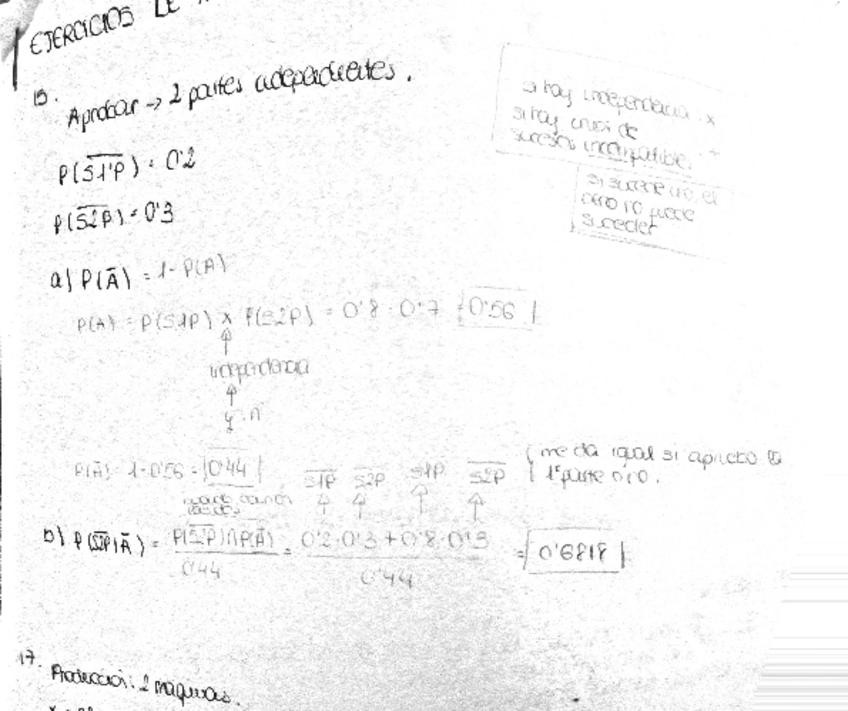 EJERCICIOS DE
15.
Aprobar → 2 partes independientes.
si hay independencia · x
si hay unión de
sucesos incompatibles · +
si sucede uno el
otro no puede
suceder
P(\overline{S1ªP}) = 0'2
P(\overline{S2P}) = 0'3
a) P(Ā) = 1 - P(A)
P(A) = P(S1P) x P(S2P) = 0'8 · 0'7 = 0'56
↑
independencia
↑
y · ∩
P(Ā) = 1 - 0'56 = 0'44
\overline{S1P} \overline{S2P} S1P \overline{S2P}
( me da igual si apruebo la
1ª parte o no.
b) P(\overline{S2P}|Ā) = P(\overline{S2P})∩P(Ā) / 0'44 = 0'2·0'3 + 0'8·0'3 / 0'44 = 0'6818
17. Producción: 2 máquinas.